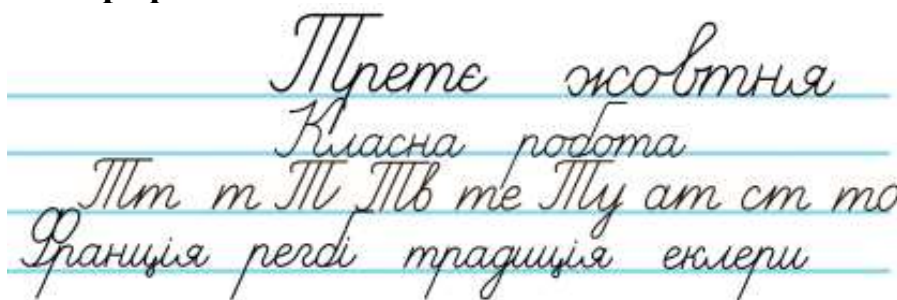 Третє жовтня
Класна робота
Тт т Т Тв те Ту ат ст то
Франція регбі традиція еклери